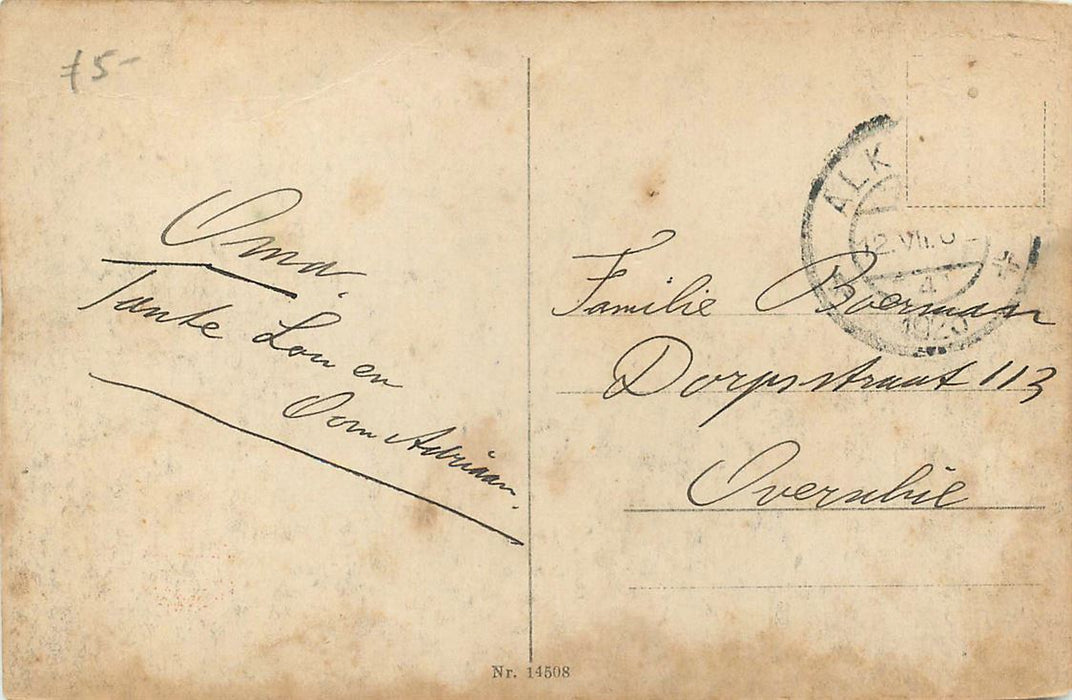 f5-
Oma.
Tante Lou en
Oom Adriaan.
ALK
12.VII.
4
1925
Familie Boerman
Dorpsstraat 113
Overschie
Nr. 14508